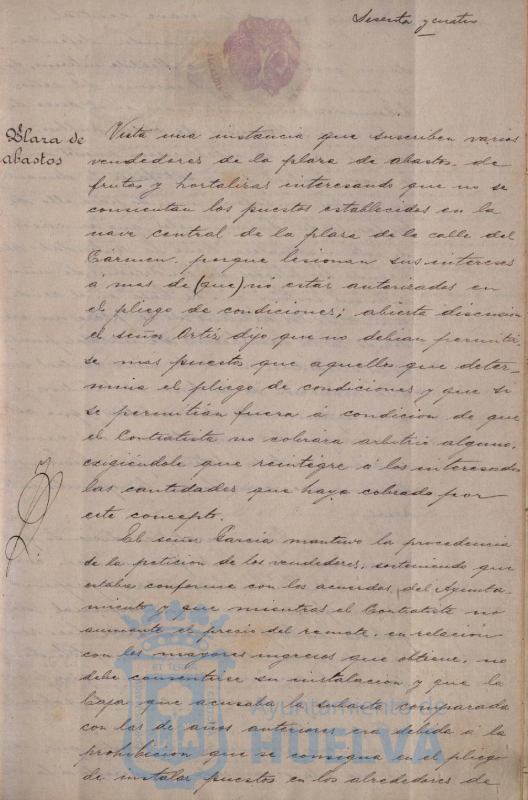 Sesenta y cuatro
Plaza de
abastos
Vista una instancia que suscriben varios
vendedores de la plaza de abastos, de
frutas y hortalizas interesando que no se
consientan los puestos establecidos en la
nave central de la plaza de la calle del
Cármen, porque lesionan sus intereses
á mas de (que) nó estár autorizados en
el pliego de condiciones; abierta discusion
el señor Ortiz, dijo que no debian permitir-
se mas puestos que aquellos que deter-
mina el pliego de condiciones y que si
se permitian fuera á condicion de que
el Contratista no cobrára arbitrio alguno,
exigiéndole que reintegre á los interesados
las cantidades que haya cobrado por
este concepto.
El señor Garcia mantuvo la procedencia
de la peticion de los vendedores, sosteniendo que
estaba conforme con los acuerdos del Ayunta-
miento y que mientras el Contratista no
aumente el precio del remate, en relación
con los mayores ingresos que obtiene, no
debe consentirse su instalacion y que la
baja que acusaba la subasta comparada
con las de años anteriores era debida á la
prohibicion que se consigna en el pliego
de instalar puestos en los alrededores de
Ayuntamiento
HUELVA